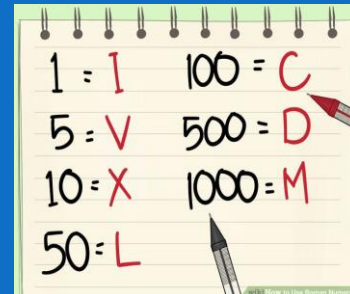 1 = I
5 = V
10 = X
50 = L
100 = C
500 = D
1000 = M
wiki How to Use Roman Numerals